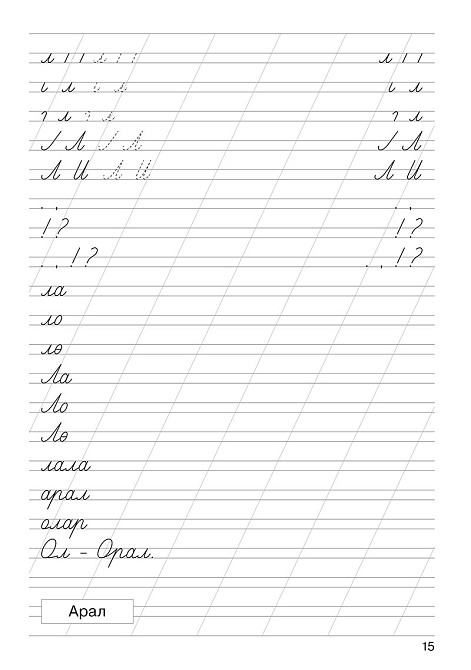 л л
л л
л л
Л Л
Л И Л И Л И
. , . ,
! ? ! ?
. , ! ? . , ! ?
ла
ло
лө
Ла
Ло
Лө
лала
арал
олар
Ол – Орал.
Арал
15